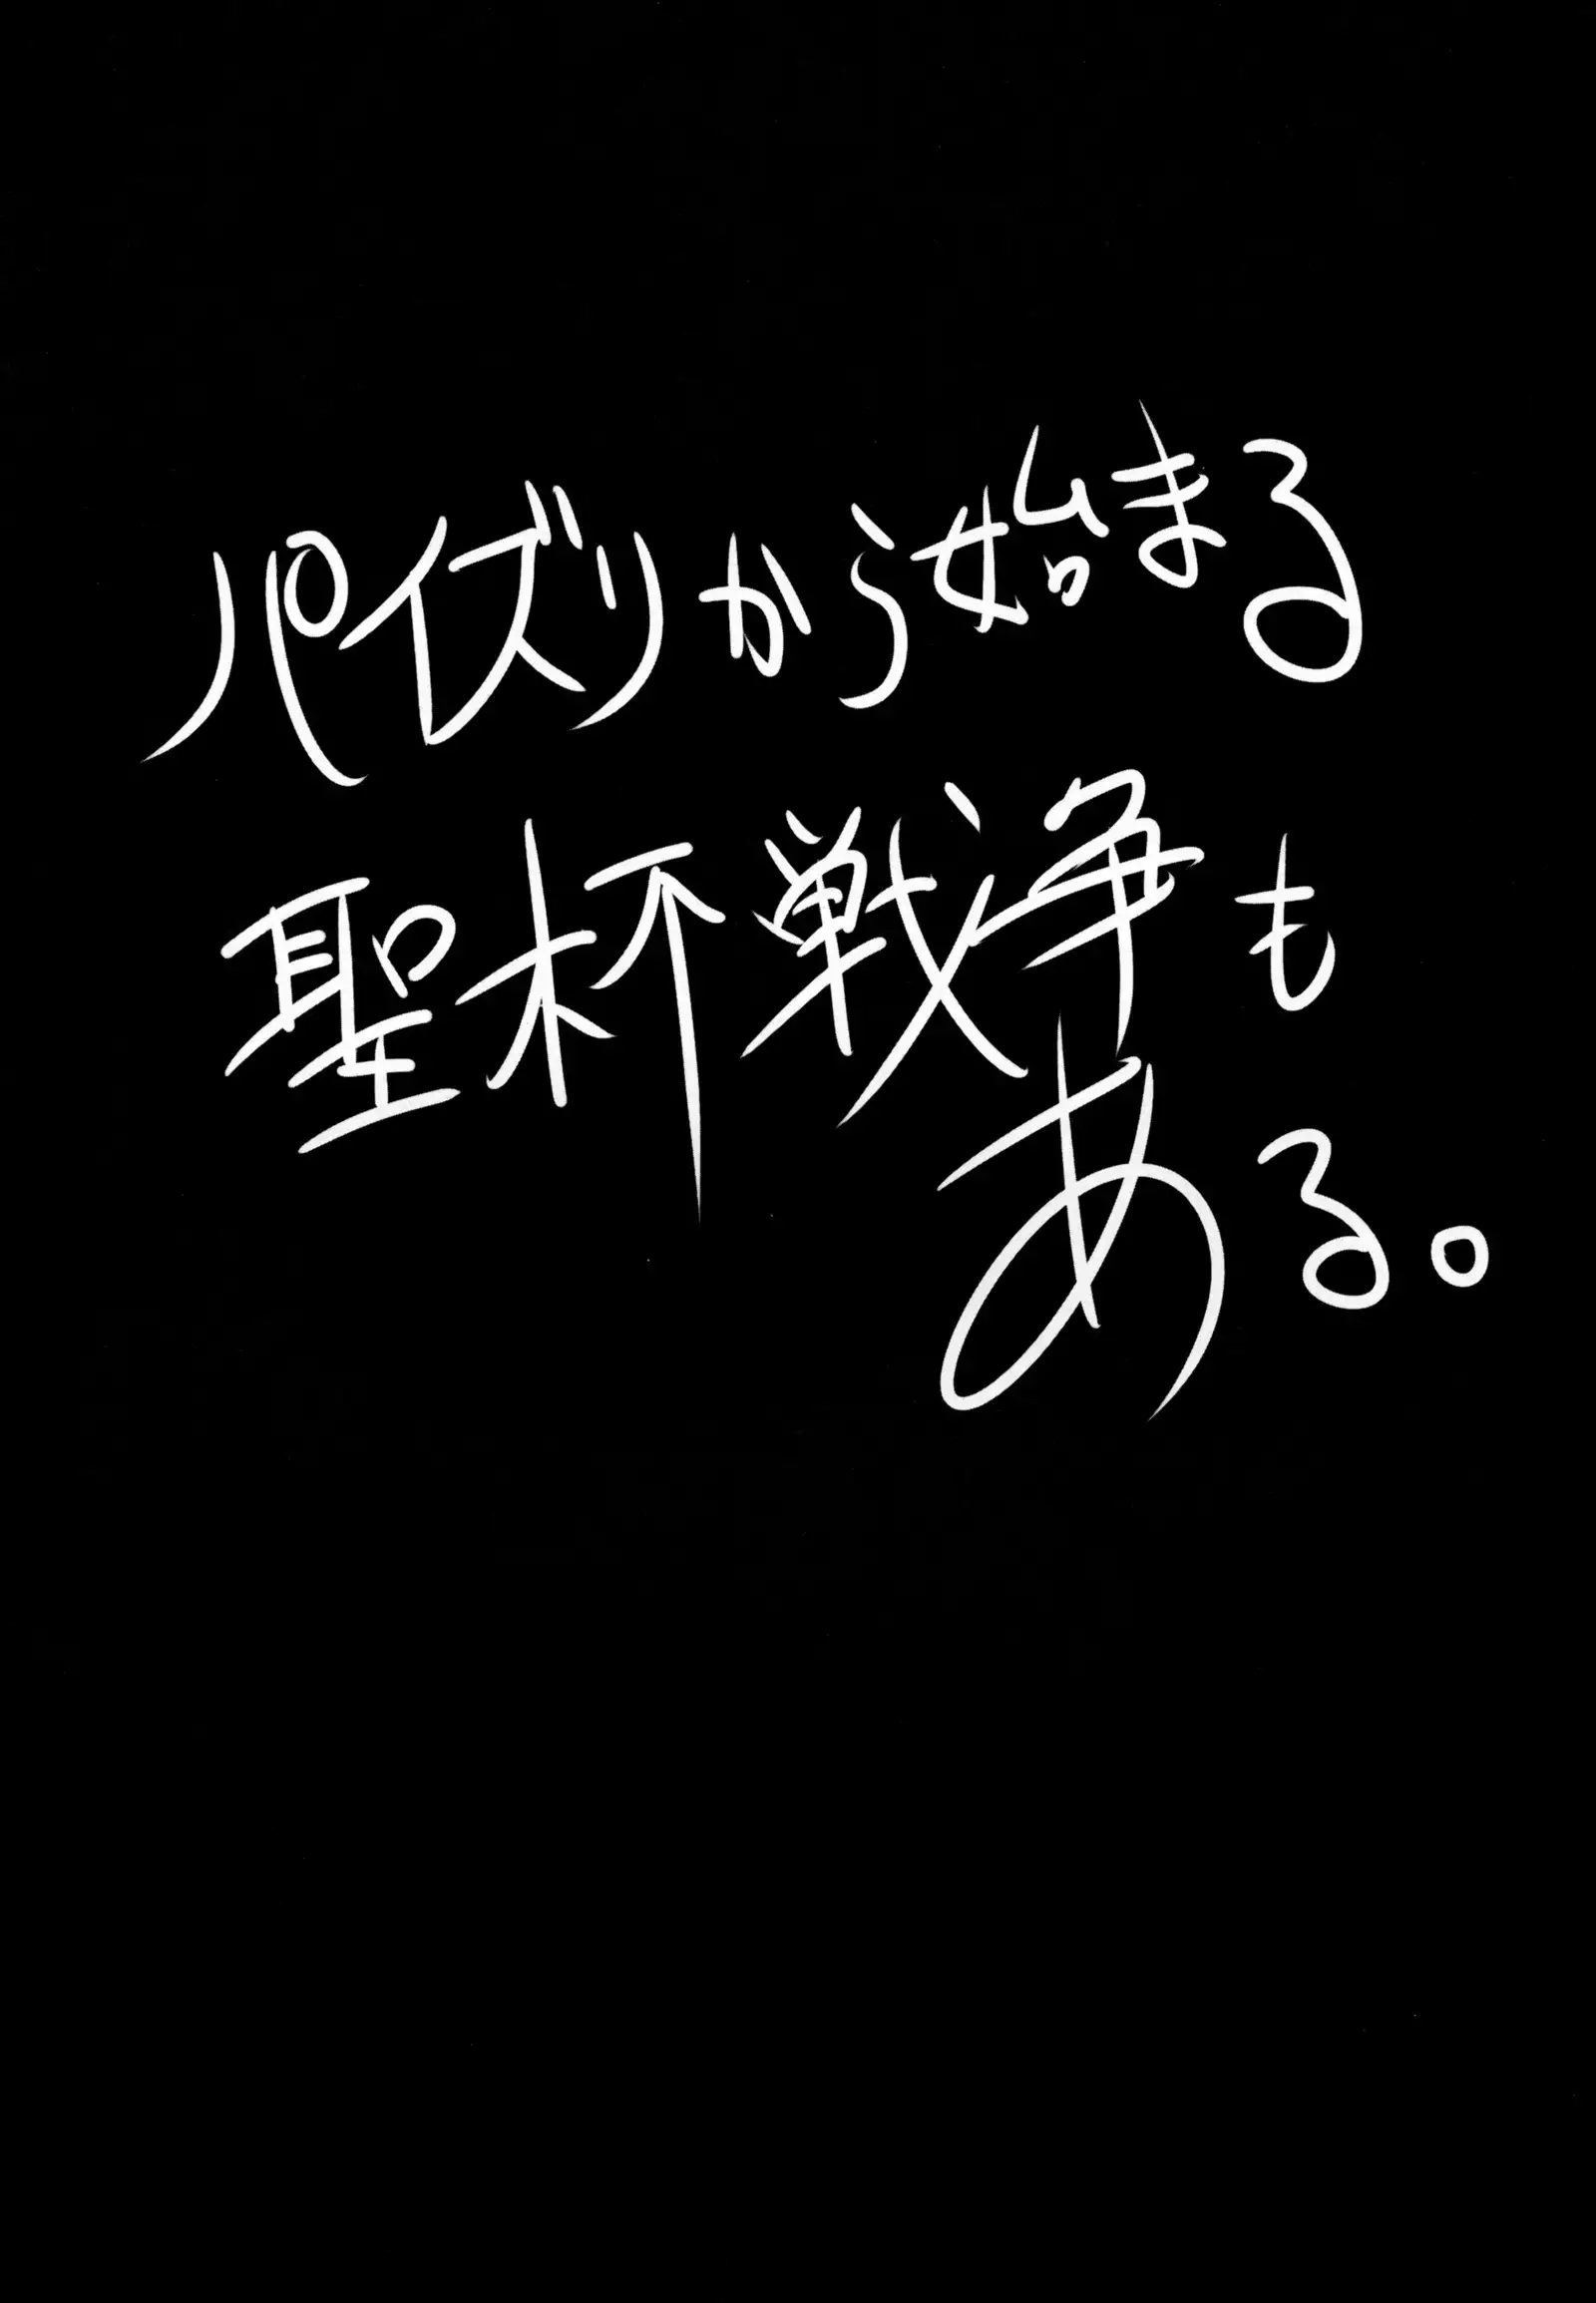 パイズリから始まる
聖杯戦争も
ある。